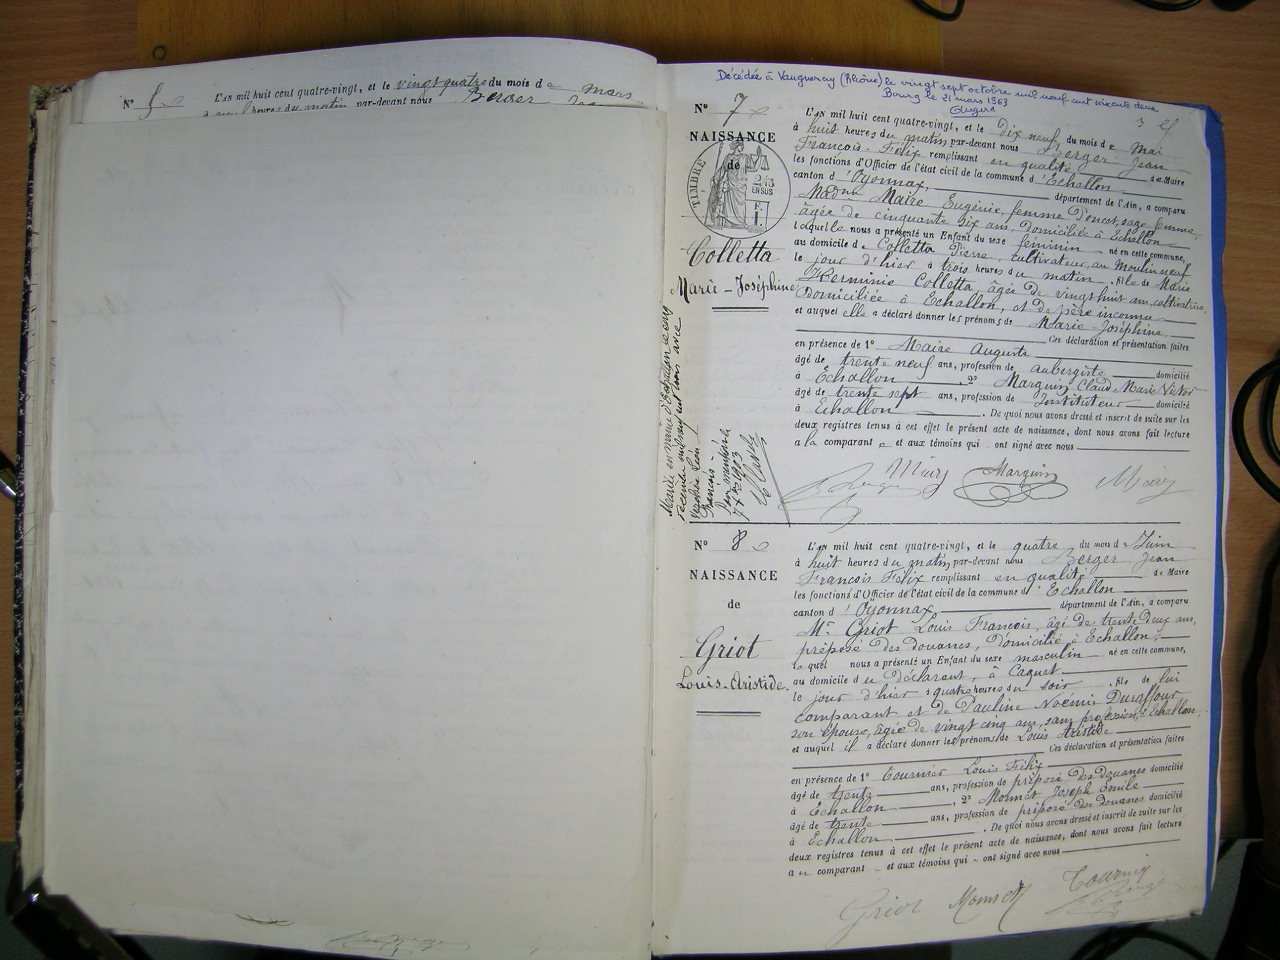 N° 5 L'an mil huit cent quatre-vingt, et le vingt quatre du mois de mars
heures du matin par-devant nous Berger
Décédée à Vaugneray (Rhône) le vingt sept octobre mil neuf cent soixante deux
Bourg le 21 mars 1963
N° 7
NAISSANCE
de
TIMBRE
Colletta
Marie-Joséphine
L'an mil huit cent quatre-vingt, et le dix neuf du mois de mai
à huit heures du matin par-devant nous Berger Jean
François-Félix remplissant en qualité de Maire
les fonctions d'Officier de l'état civil de la commune d'Echallon
canton d'Oyonnax, département de l'Ain, a comparu
Madme Maire Eugénie, femme Poncet, sage femme,
âgée de cinquante six ans, domiciliée à Echallon
laquelle nous a présenté un Enfant du sexe féminin né en cette commune,
au domicile de Colletta Pierre, cultivateur, au Moulin neuf
le jour d'hier à trois heures du matin, fille de Marie
Herminie Colletta, âgée de vingt huit ans, cultivatrice,
domiciliée à Echallon, et de père inconnu
et auquel elle a déclaré donner les prénoms de Marie Joséphine
Ces déclaration et présentation faites
en présence de 1° Maire Auguste
âgé de trente neuf ans, profession de aubergiste domicilié
à Echallon, 2° Marquis Claude Marie Victor
âgé de trente sept ans, profession de Instituteur domicilié
à Echallon. De quoi nous avons dressé et inscrit de suite sur les
deux registres tenus à cet effet le présent acte de naissance, dont nous avons fait lecture
a la comparante et aux témoins qui ont signé avec nous
Marquis
N° 8
NAISSANCE
de
Griot
Louis-Aristide.
L'an mil huit cent quatre-vingt, et le quatre du mois de Juin
à huit heures du matin par-devant nous Berger Jean
François Félix remplissant en qualité de Maire
les fonctions d'Officier de l'état civil de la commune d'Echallon
canton d'Oyonnax, département de l'Ain, a comparu
Mr Griot Louis François, âgé de trente deux ans,
préposé des douanes, domicilié à Echallon,
lequel nous a présenté un Enfant du sexe masculin né en cette commune,
au domicile du déclarant, à
le jour d'hier à quatre heures du soir, fils de lui
comparant et de Pauline Noémie Duraffour
son épouse, âgée de vingt cinq ans, sans profession, à Echallon,
et auquel il a déclaré donner les prénoms de Louis Aristide
Ces déclaration et présentation faites
en présence de 1° Tournier Louis Félix
âgé de trente ans, profession de préposé des douanes domicilié
à Echallon, 2° Monnet Joseph Emile
âgé de trente ans, profession de préposé des douanes domicilié
à Echallon. De quoi nous avons dressé et inscrit de suite sur les
deux registres tenus à cet effet le présent acte de naissance, dont nous avons fait lecture
au comparant et aux témoins qui ont signé avec nous
Tournier
Griot Monnet